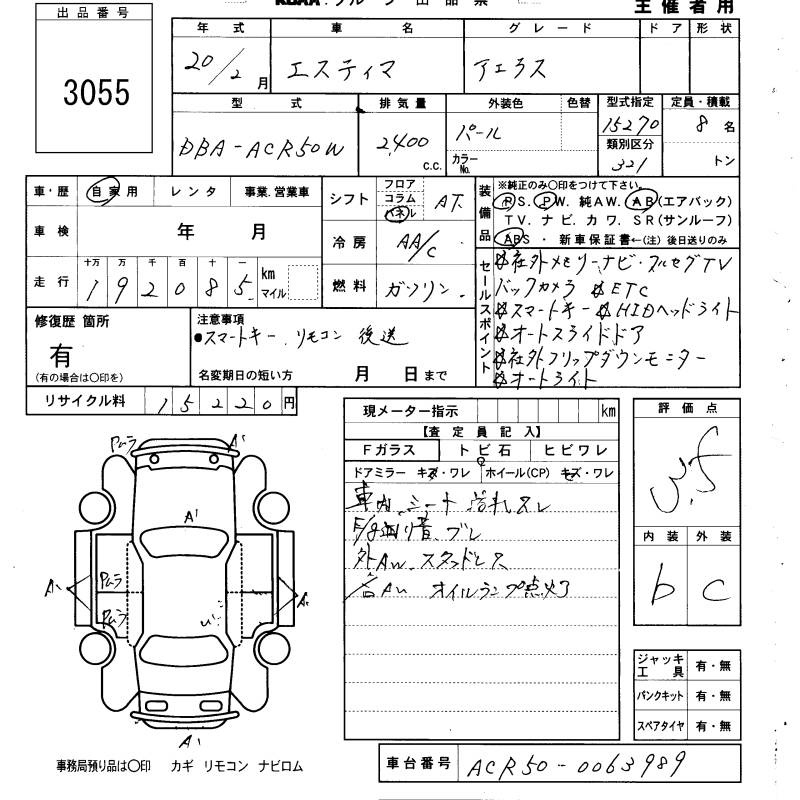 主催者用
出品番号
3055
年式 車名 グレード ドア 形状
20/2月 エスティマ アエラス
型式 排気量 外装色 色替 型式指定 定員・積載
DBA-ACR50W 2,400 c.c. パール 15270 8名
カラーNo. 類別区分 321 トン
車・歴 自家用 レンタ 事業.営業車
車検 年 月
走行 十万 万 千 百 十 一
192085 km マイル
シフト フロア コラム パネル AT
冷房 AA/C
燃料 ガソリン
装備品 ※純正のみ〇印をつけて下さい。
PS. PW. 純AW. AB(エアバック)
TV. ナビ. カワ. SR(サンルーフ)
ABS. 新車保証書←(注)後日送りのみ
セールスポイント
社外メモリーナビ・フルセグTV
バックカメラ ETC
スマートキー HIDヘッドライト
オートスライドドア
社外フリップダウンモニター
オートライト
修復歴 箇所
有
(有の場合は〇印を)
注意事項
●スマートキー.リモコン 後送
名変期日の短い方 月 日まで
リサイクル料 15220円
現メーター指示 km
【査定員記入】
Fガラス トビ石 ヒビワレ
ドアミラー キズ・ワレ ホイール(CP) キズ・ワレ
車内、シート
外AW.スタッドレス
オイルランプ点灯
評価点
3.5
内装 外装
b C
ジャッキ工具 有・無
パンクキット 有・無
スペアタイヤ 有・無
A'
A'
A'
事務局預り品は〇印 カギ リモコン ナビロム
車台番号 ACR50-0063989